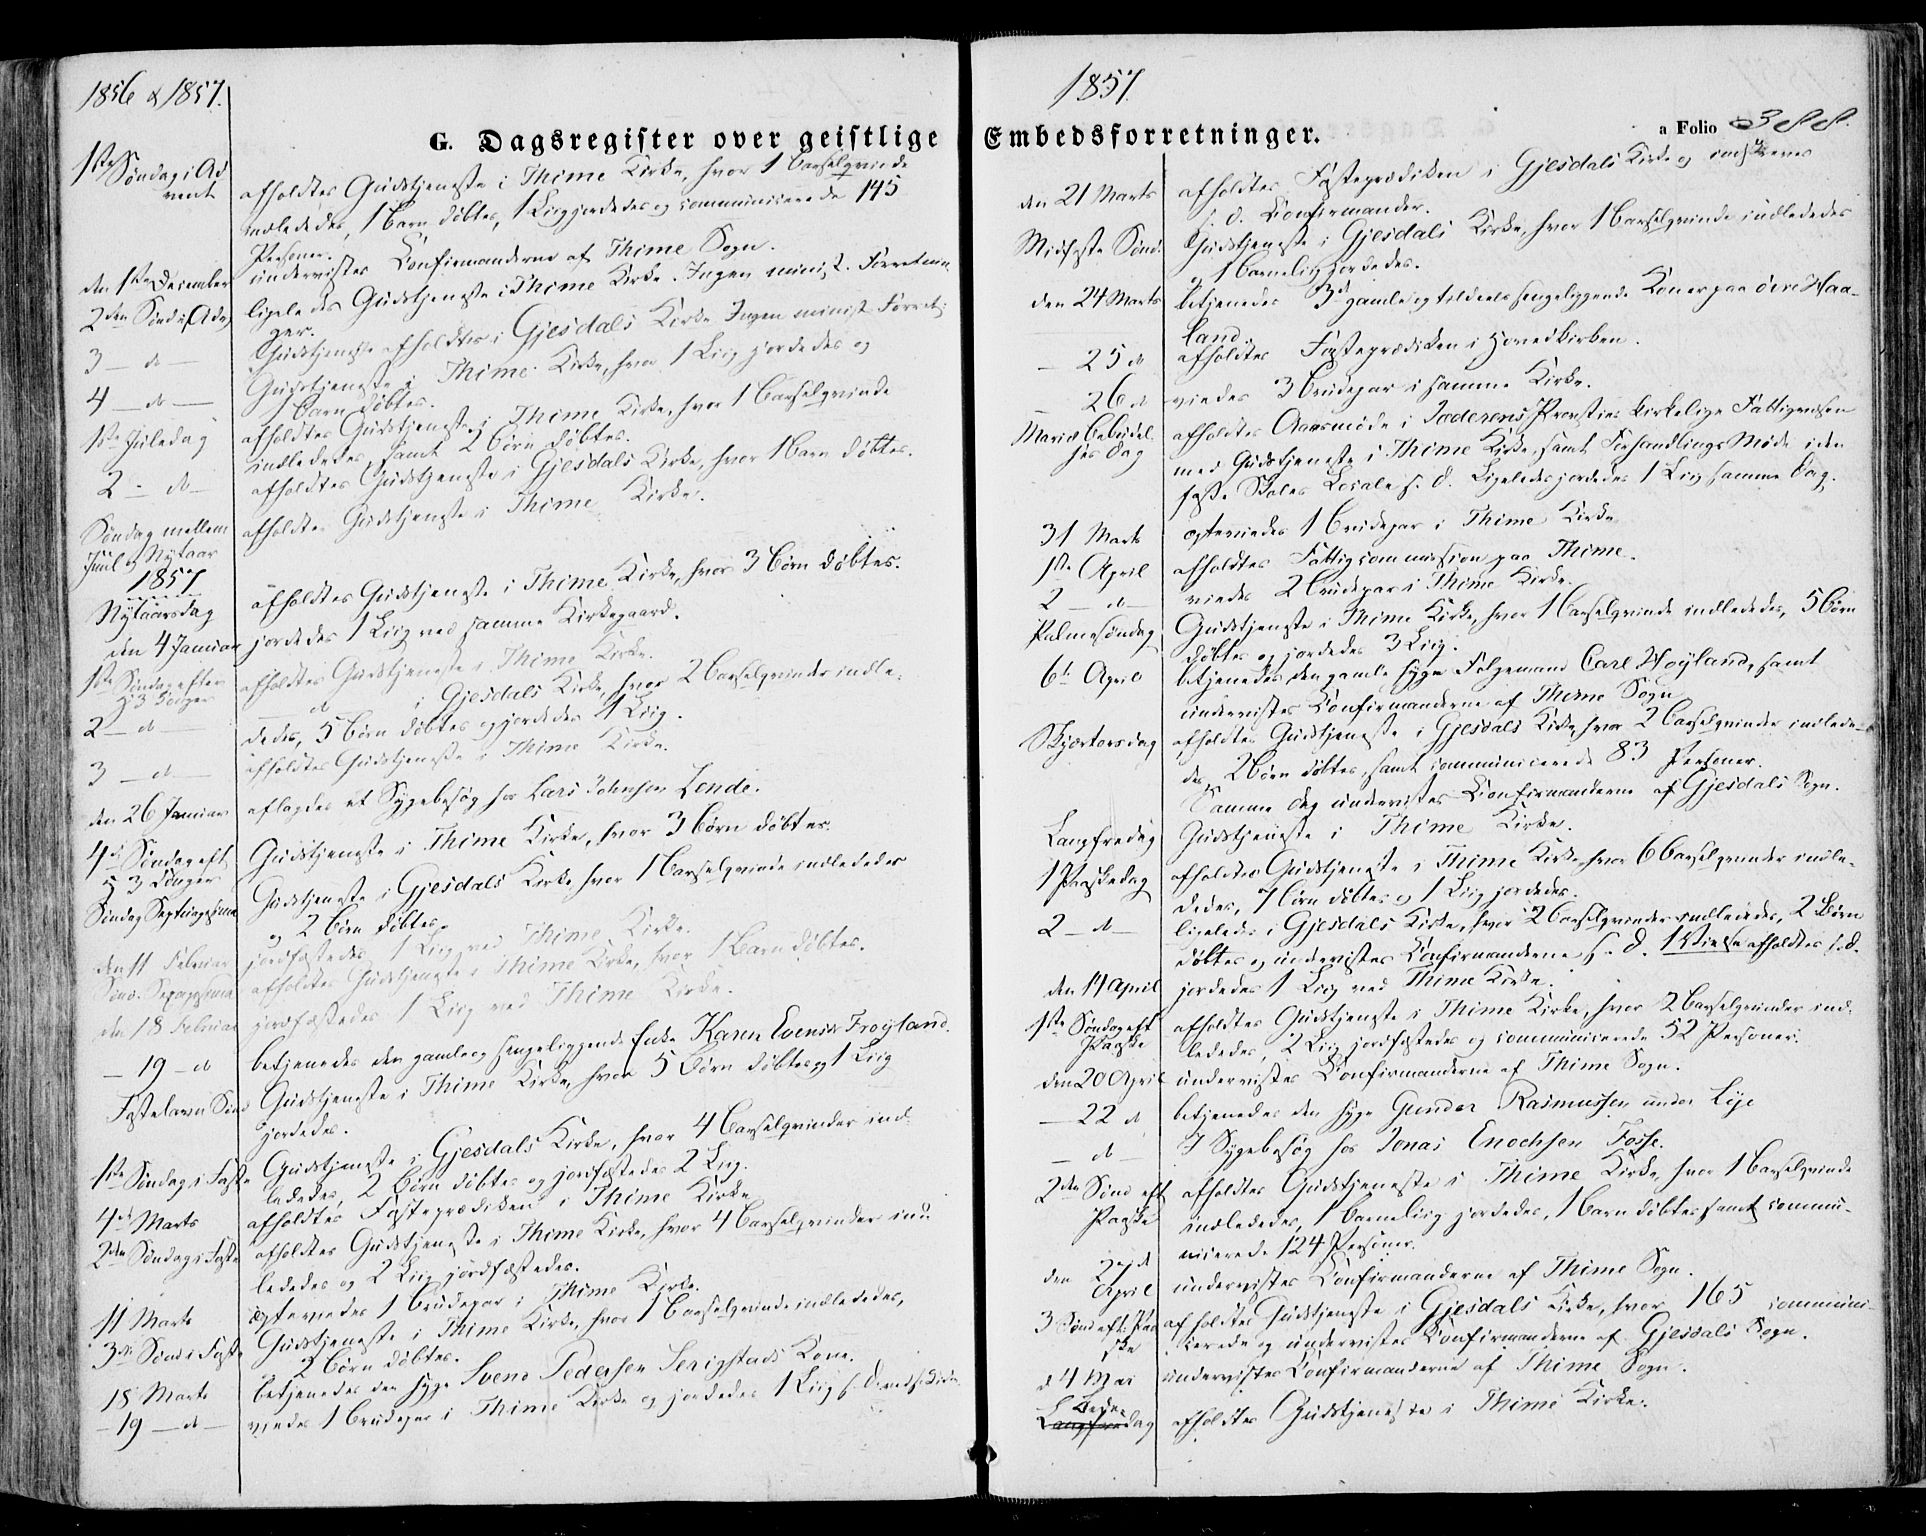 1856 & 1857.
G. Dagsregister over geistlige
1ste Søndag i Ad
vent
afholdtes Gudstjeneste i Thime Kirke, hvor 1 Barselqvinde
indlededes, 1 Barn døbtes, 1 Liig jordedes og communicerede 145
Personer.
den 1ste December
undervistes Confirmanderne af Thime Sogn.
2den Sønd. i Adv
ligeledes Gudstjeneste i Thime Kirke. Ingen minist. Forretnin
ger.
3 – do –
Gudstjeneste afholdtes i Gjesdals Kirke Ingen minist Forret:
4 – do –
Gudstjeneste i Thime Kirke, hvor 1 Liig jordedes og
1 Barn døbtes.
1ste Juledag
afholdtes Gudstjeneste i Thime Kirke, hvor 1 Barselqvinde
indlededes, samt 2 Børn døbtes.
2 – do –
afholdtes Gudstjeneste i Gjesdals Kirke, hvor 1 Barn døbtes.
Søndag mellem
Juul og Nytaar
afholdtes Gudstjeneste i Thime Kirke.
1857
Nytaarsdag
afholdtes Gudstjeneste i Thime Kirke, hvor 3 Børn døbtes.
den 4 Januar
jordedes 1 Liig ved samme Kirkegaard.
1ste Søndag efter
H 3 Konger
afholdtes Gudstjeneste i Thime Kirke.
2 – do –
– do i Gjesdals Kirke, hvor 2 Barselqvinder indle-
dedes, 5 Børn døbtes og jordedes 1 Liig.
3 – do –
afholdtes Gudstjeneste i Thime Kirke.
den 26 Januar
aflagdes et Sygebesøg hos Lars Johnsen Lende.
4de Søndag eft
H 3 Konger
Gudstjeneste i Thime Kirke, hvor 3 Børn døbtes.
Søndag Septuagesima
Gudstjeneste i Gjesdals Kirke, hvor 1 Barselqvinde indlededes
og 2 Børn døbtes.
den 11 Februar
jordfæstedes 1 Liig ved Thime Kirke.
Sønd. Sexagesima
afholdtes Gudstjeneste i Thime Kirke, hvor 1 Barn døbtes.
den 18 Februar
jordfæstedes 1 Liig ved Thime Kirke.
– 19 – do
betjenedes den gamle og sengeliggende Enke Karen Evensdr Frøyland.
Fastelavns Sønd
Gudstjeneste i Thime Kirke, hvor 5 Børn døbtes og 1 Liig
jordedes.
1ste Søndag i Faste
Gudstjeneste i Gjesdals Kirke, hvor 4 Barselqvinder ind-
lededes, 2 Børn døbtes og jordfæstedes 2 Liig.
4de Marts
afholdtes Fasteprædiken i Thime Kirke
2den Søndag i Faste
afholdtes Gudstjeneste i Thime Kirke, hvor 4 Barselqvinder ind-
lededes og 2 Liig jordfæstedes.
11 Marts
ægteviedes 1 Brudepar i Thime Kirke.
3die Sønd i Faste
Gudstjeneste i Thime Kirke, hvor 1 Barselqvinde indlededes,
2 Børn døbtes.
18 Marts
betjenedes den syge Svend Pedersen Serigstads Kone.
– 19 – do –
viedes 1 Brudepar i Thime Kirke og jordedes 1 Liig
1857.
Embedsforretninger.
a Folio 388.
den 21 Marts
afholdtes Fasteprædiken i Gjesdals Kirke og indskreves
s. d. Confirmander.
Midfaste Sønd.
Gudstjeneste i Gjesdals Kirke, hvor 1 Barselqvinde indlededes
og 1 Barneliig jordedes.
den 24 Marts
betjenedes 3de gamle og tildeels sengeliggende Koner paa øvre Haa-
land.
– 25 do
afholdtes Fasteprædiken i Hovedkirken.
– 26 do
viedes 3 Brudepar i samme Kirke.
Mariæ Bebudel-
ses Dag
afholdtes Aarsmøde i Jæderens Provsties kirkelige Fattigvæsen
med Gudstjeneste i Thime Kirke, samt Forhandlings Møde i den
faste Skoles Locale s. d. Ligeledes jordedes 1 Liig samme Dag.
31 Marts
ægteviedes 1 Brudepar i Thime Kirke
1ste April
afholdtes Fattigcommission paa Thime.
2 – do –
viedes 2 Brudepar i Thime Kirke.
Palmesøndag
Gudstjeneste i Thime Kirke, hvor 1 Barselqvinde indlededes, 5 Børn
døbtes og jordedes 3 Liig.
6te April
betjenedes den gamle syge Følgemand Carl Høyland, samt
undervistes Confirmanderne af Thime Sogn
Skjærtorsdag
afholdtes Gudstjeneste i Gjesdals Kirke, hvor 2 Barselqvinder indlede-
des, 2 Børn døbtes, samt communicerede 83 Personer.
Samme Dag undervistes Confirmanderne af Gjesdals Sogn.
Langfredag
Gudstjeneste i Thime Kirke.
1 Paaskedag
afholdtes Gudstjeneste i Thime Kirke, hvor 6 Barselqvinder indle-
dedes, 7 Børn døbtes og 1 Liig jordedes.
2 – do –
ligeledes i Gjesdals Kirke, hvor 2 Barselqvinder indlededes, 2 Børn
døbtes og undervistes Confirmanderne s. d. 1 Vielse afholdtes s. d.
den 14 April
jordedes 1 Liig ved Thime Kirke.
1ste Søndag eft
Paaske
afholdtes Gudstjeneste i Thime Kirke, hvor 2 Barselqvinder ind-
lededes, 2 Liig jordfæstedes og communicerede 52 Personer.
den 20 April
undervistes Confirmanderne af Thime Sogn.
– 22 do
betjenedes den syge Gunder Rasmussen under Lye
– do –
I Sygebesøg hos Jonas Enochsen Fosse.
2den Sønd eft
Paaske
afholdtes Gudstjeneste i Thime Kirke, hvor 1 Barselqvinde
indlededes, 1 Barneliig jordedes, 1 Barn døbtes samt commu-
nicerede 124 Personer.
den 27de
April
undervistes Confirmanderne af Thime Sogn.
3 Sønd eft: Paa
ske
afholdtes Gudstjeneste i Gjesdals Kirke, hvor 165 communi-
cerede og undervistes Confirmanderne af Gjesdals Sogn.
d 4 Mai
undervistes Confirmanderne af Thime Sogn.
St. Bede
Langfredag
afholdtes Gudstjeneste i Thime Kirke.